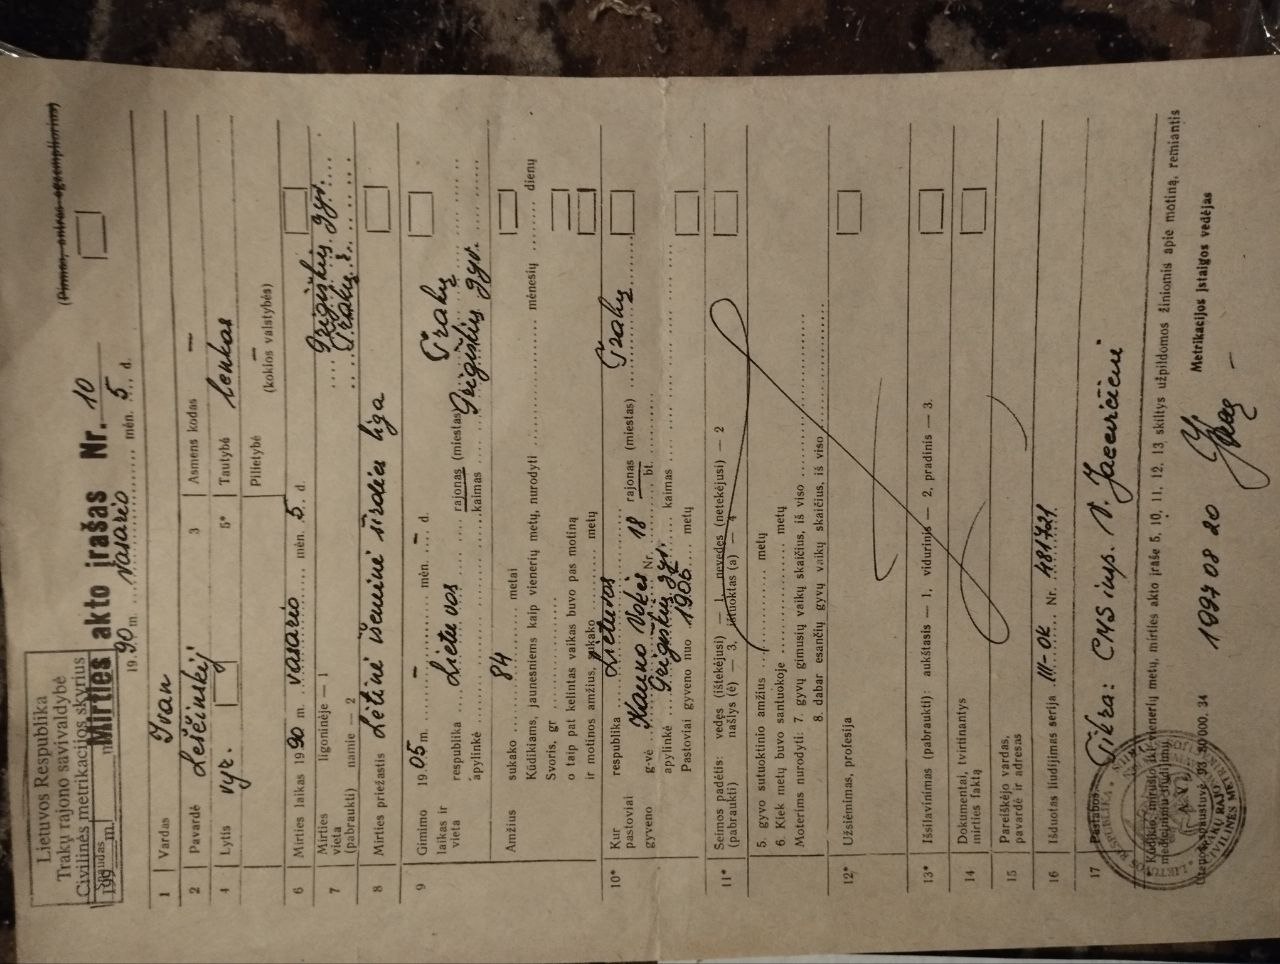 Lietuvos Respublika
Trakų rajono savivaldybė
Civilinės metrikacijos skyrius
Spaudas
199 m.
(Pirmas, antras egzempliorius)
Mirties akto įrašas Nr. 10
1990 m. vasario mėn. 5 d.
1 Vardas Ivan
2 Pavardė Leščinskij 3 Asmens kodas —
4 Lytis vyr. 5* Tautybė lenkas
Pilietybė —
(kokios valstybės)
6 Mirties laikas 1990 m. vasario mėn. 5 d.
7 Mirties vieta (pabraukti) ligoninėje — 1 Grigiškių gyv.
namie — 2 Trakų r.
8 Mirties priežastis Lėtinė išeminė širdies liga
9 Gimimo laikas ir vieta 1905 m. – mėn. – d.
respublika Lietuvos rajonas (miestas) Trakų
apylinkė kaimas Grigiškių gyv.
Amžius sukako 84 metai
Kūdikiams, jaunesniems kaip vienerių metų, nurodyti mėnesių dienų
Svoris, gr
o taip pat kelintas vaikas buvo pas motiną
ir motinos amžius, sukako metų
10* Kur pastoviai gyveno respublika Lietuvos rajonas (miestas) Trakų
g-vė Kauno Vokės Nr. 18 bt.
apylinkė Grigiškių gyv. kaimas
Pastoviai gyveno nuo 1906 metų
11* Šeimos padėtis: vedęs (ištekėjusi) — 1, nevedęs (netekėjusi) — 2
(pabraukti) našlys (ė) — 3, ištuoktas (a) — 4
5. gyvo sutuoktinio amžius metų
6. Kiek metų buvo santuokoje metų
Moterims nurodyti: 7. gyvų gimusių vaikų skaičius, iš viso
8. dabar esančių gyvų vaikų skaičius, iš viso
12* Užsiėmimas, profesija
13* Išsilavinimas (pabraukti): aukštasis — 1, vidurinis — 2, pradinis — 3.
14 Dokumentai, tvirtinantys mirties faktą
15 Pareiškėjo vardas, pavardė ir adresas
16 Išduotas liudijimas serija III-OK Nr. 481721
17 Pastabos: Tikra: CMS insp. V. Jacevičienė
Kūdikio, mirusio iki vienerių metų, mirties akto įraše 5, 10, 11, 12, 13 skiltys užpildomos žiniomis apie motiną, remiantis
medicininiu liudijimu
A. V.
Metrikacijos įstaigos vedėjas
Utenos spaustuvė 93. 80 000. 34
1997 08 20